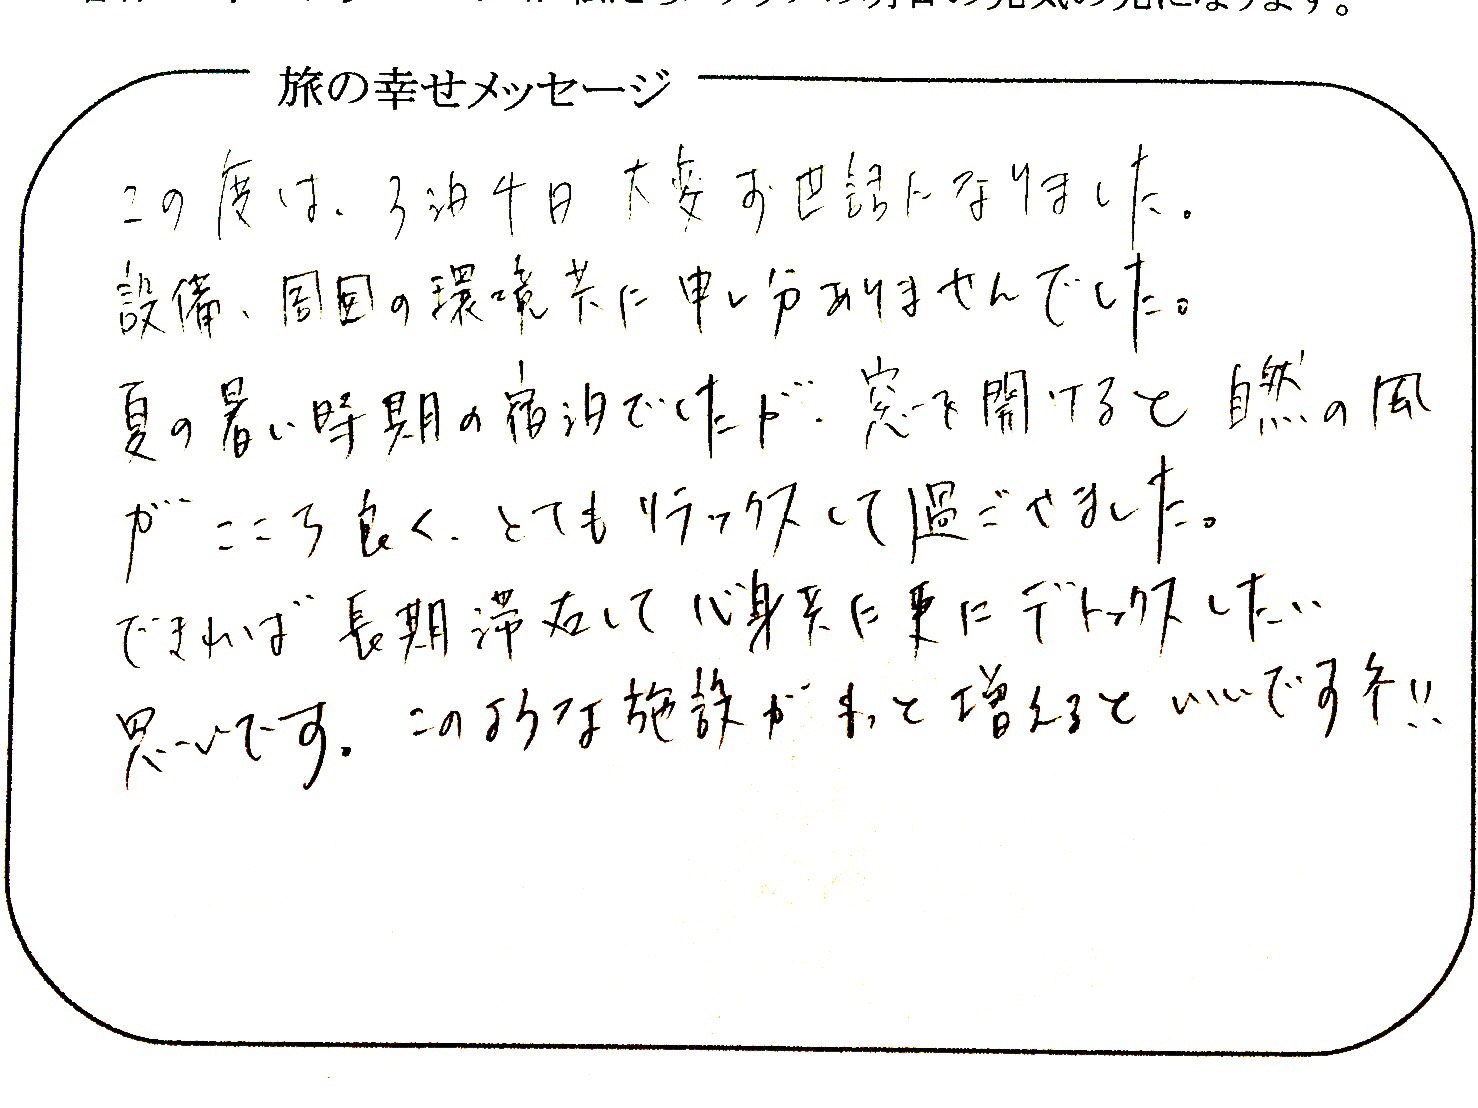 旅の幸せメッセージ
この度は、3泊4日 大変お世話になりました。
設備、周囲の環境共に申し分ありませんでした。
夏の暑い時期の宿泊でしたが、窓を開けると自然の風
がこころ良く、とてもリラックスして過ごせました。
できれば長期滞在して心身共に更にデトックスしたい
思いです。このような施設がもっと増えるといいですネ!!